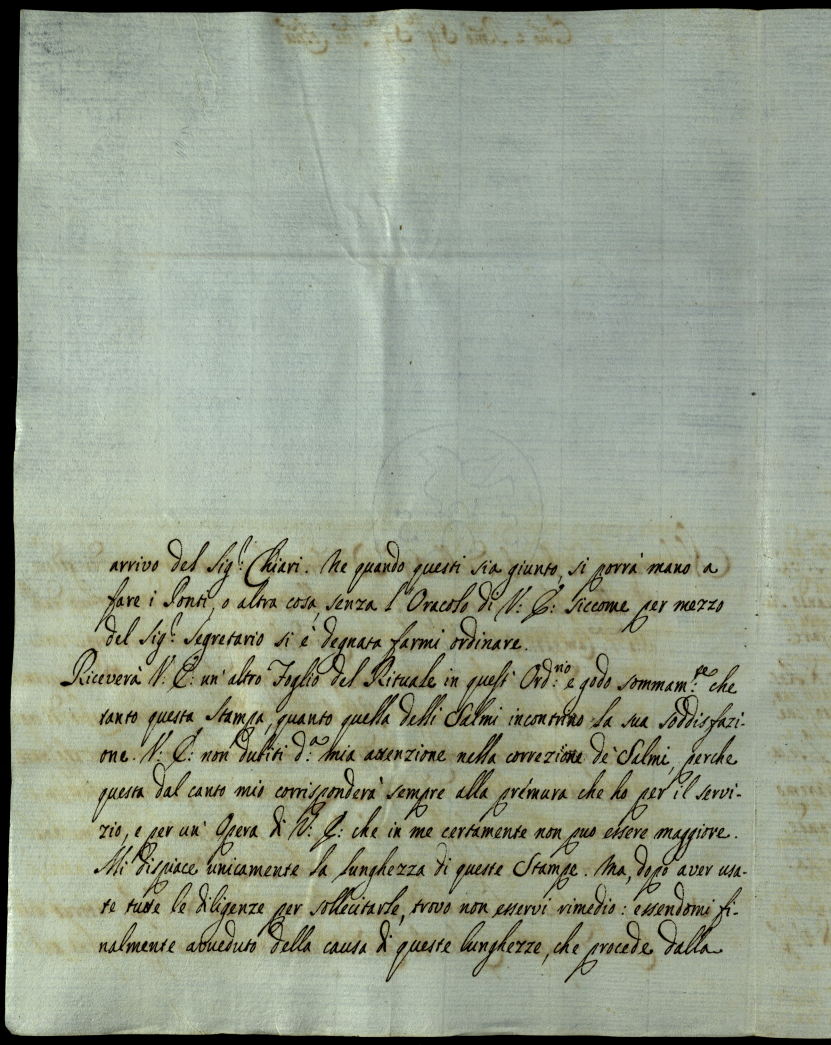 arrivo del Sig.r Chiari. Ne quando questi sia giunto, si porrà mano a
fare i Ponti, o altra cosa, senza l'Oracolo di V: E: siccome per mezzo
del Sig.r Segretario si è degnata farmi ordinare.
Riceverà V: E: un'altro Foglio del Rituale in quest'Ord:rio e godo sommam:te che
tanto questa Stampa, quanto quella delli Salmi incontrino la sua soddisfazi-
one. V: E: non dubiti d:a mia attenzione nella correzione de' Salmi, perche
questa dal canto mio corrisponderà sempre alla prèmura che ho per il servi-
zio, e per un'Opera di V: E: che in me certamente non puo essere maggiore.
Mi dispiace unicamente la lunghezza di queste Stampe. Ma, dopo aver usa-
te tutte le diligenze per sollecitarle, trovo non esservi rimedio: essendomi fi-
nalmente avveduto della causa di queste lunghezze, che procede dalla